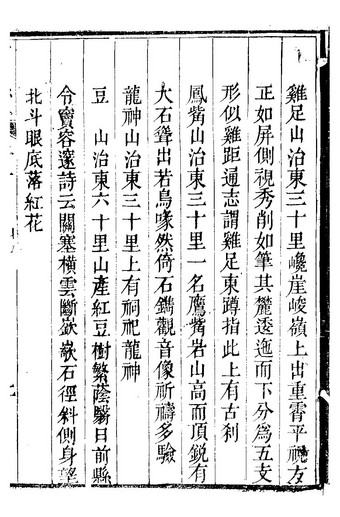 雞足山治東三十里巉崖峻嶺上出重霄平視友
正如屏側視秀削如筆其麓透迤而下分為五支
形似雞距通志謂雞足東蹲指此上有古刹
鳳觜山治東三十里一名鷹觜岩山高而頂銳有
大石聳出若鳥喙然倚石鐫觀音像祈禱多驗
龍神山治東三十里上有祠祀龍神
豆山治東六十里山產紅豆樹繁蔭翳日前縣
令竇容邃詩云關塞橫雲斷嶔嶔石徑斜側身望
北斗眼底落紅花